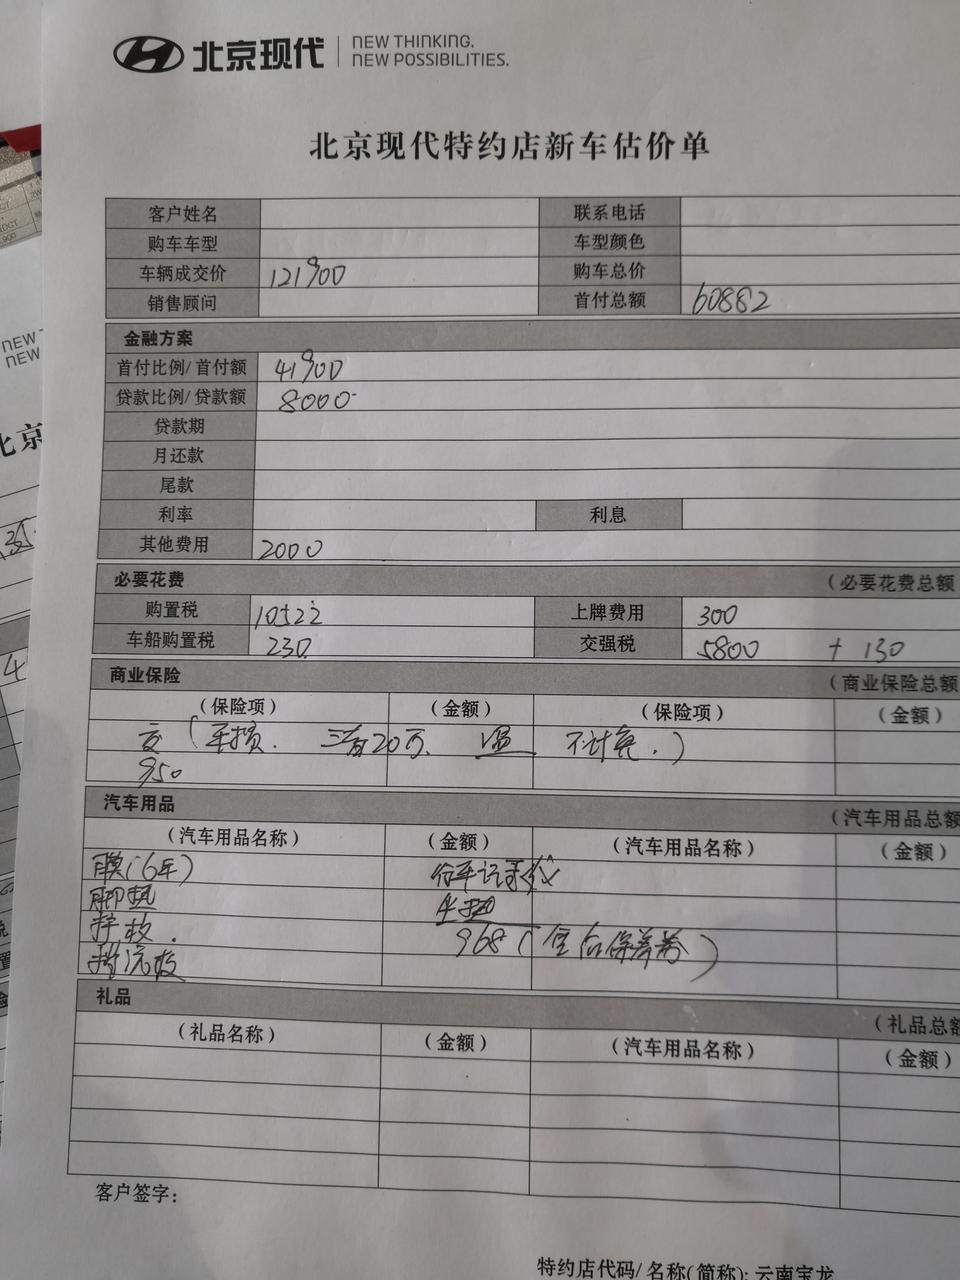 北京现代 NEW THINKING.
NEW POSSIBILITIES.
北京现代特约店新车估价单
客户姓名 联系电话
购车车型 车型颜色
车辆成交价 121900 购车总价
销售顾问 首付总额 60882
金融方案
首付比例/首付额 41900
贷款比例/贷款额 8000
贷款期
月还款
尾款
利率 利息
其他费用 2000
必要花费 (必要花费总额
购置税 10522 上牌费用 300
车船购置税 230 交强税 5800 + 130
商业保险 (商业保险总额
(保险项) (金额) (保险项) (金额)
交 (车损. 三者20万. 不计免.)
950
汽车用品 (汽车用品总额
(汽车用品名称) (金额) (汽车用品名称) (金额)
膜(6年) 行车记录仪
脚垫 坐垫
968 (
礼品 (礼品总额
(礼品名称) (金额) (汽车用品名称) (金额)
客户签字:
特约店代码/名称(简称): 云南宝龙
NEW T
NEW
北京